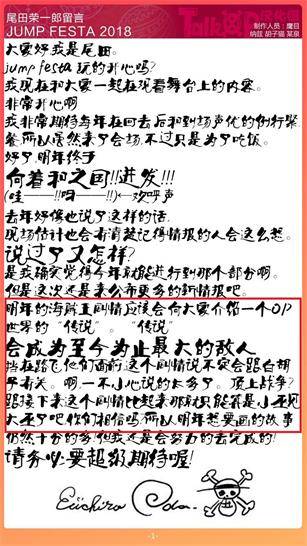 尾田荣一郎留言
JUMP FESTA 2018
制作人员：鹰目
纳兹 胡子猫 某泉
大家好我是尾田。
jump festa 玩的开心吗？
我现在和大家一起在观看舞台上的内容。
非常开心啊
我非常期待每年在回去后和到场声优的例行聚
餐所以居然来了会场。不过只是为了吃饭。
好了明年终于
向着和之国!!进发!!!
(哇——!!呀——!!)←欢呼声
去年好像也说了这样的话。
现场估计也会有清楚记得情报的人会这么想。
说过了又怎样？
是我确实觉得今年就能进行到那个部分啊。
但是这次还是来公布更多的新情报吧。
明年的海贼王剧情应该会向大家介绍一个OP
世界的“传说”。“传说”
会成为至今为止最大的敌人
挡在路飞他们面前这个剧情说不定会跟白胡
子有关。啊，一不小心说的太多了。顶上战争？
跟接下来这个剧情比起来那就只能算是小巫见
大巫了吧你们相信吗？所以明年想要画的故事
仍然十分的多！但我还是会努力的去完成的！
请务必要超级期待喔！
Eiichiro Oda.
-1-